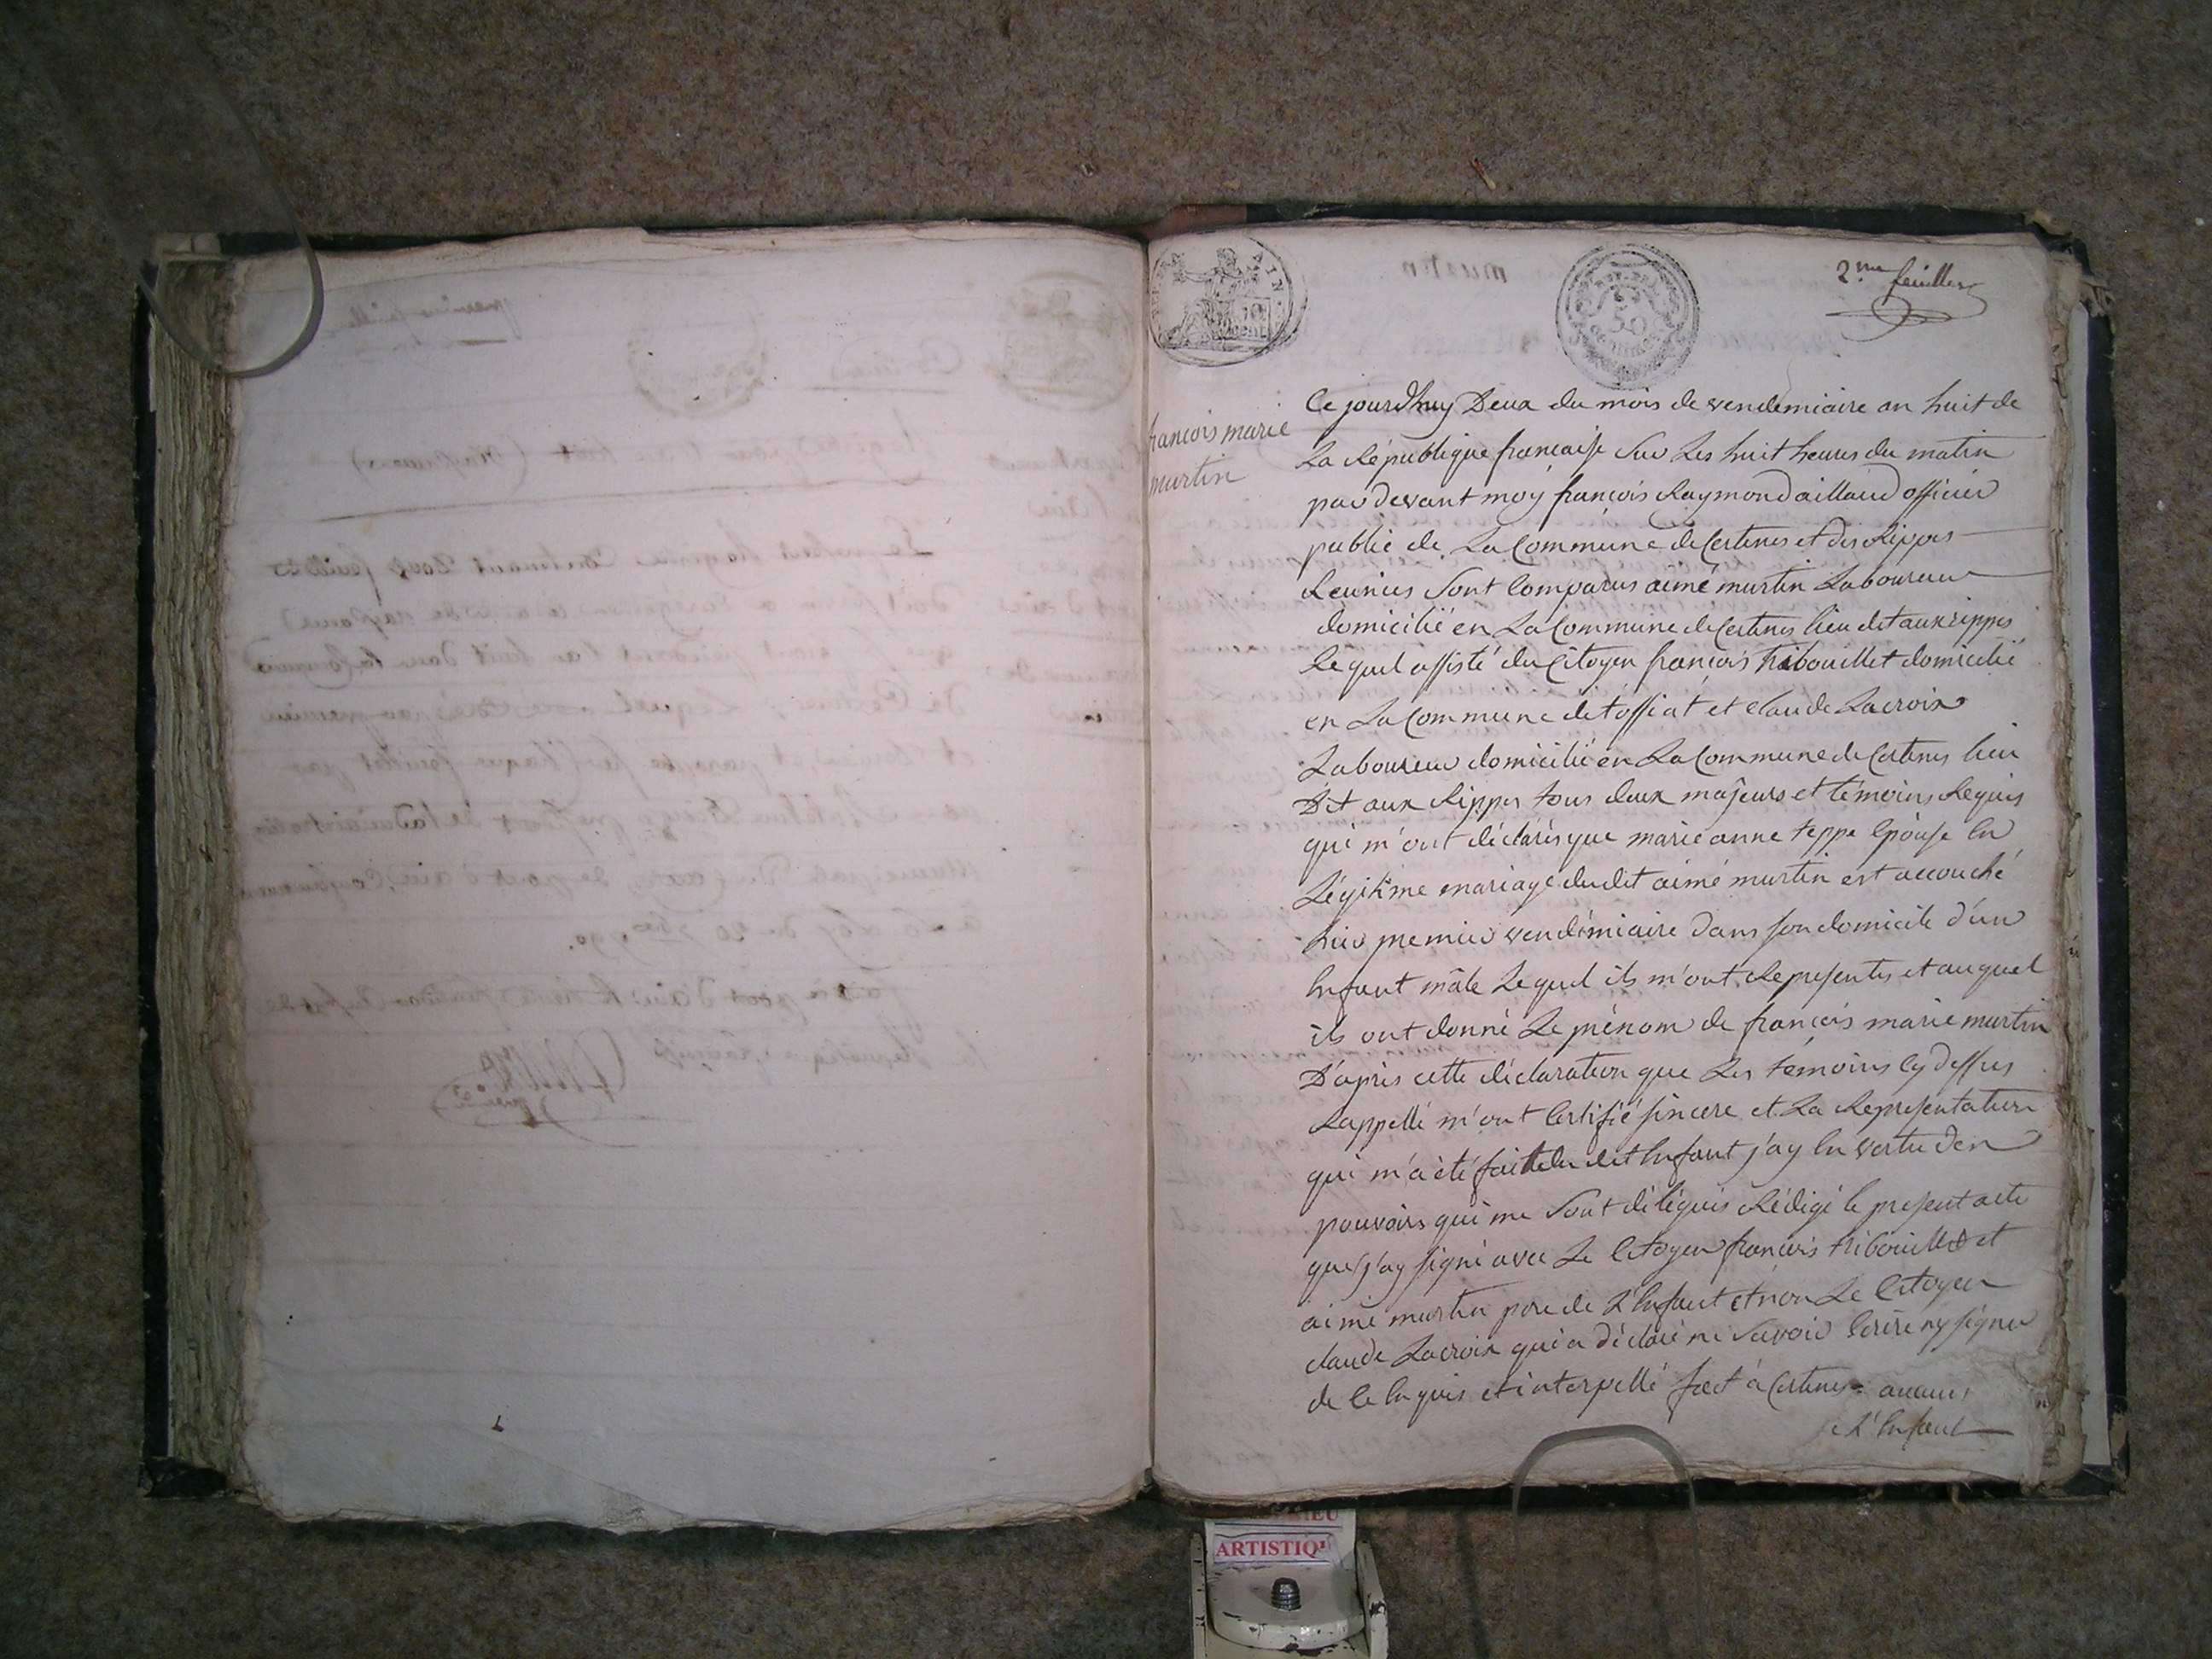 2.me feuillet
françois marie
murtin
Ce jourdhuy Deux du mois de vendemiaire an huit de
La République francaise sur Les huit heures du matin
par devant moy françois Raymond aillaud officier
public de La Commune de Certines et des Rippes
Réunies sont Comparus aimé murtin Laboureur
domicilié en La Commune de Certines lieu dit aux rippes
lequel assisté du Citoyen françois tribouillet domicilié
en La Commune de tossiat et claude Lacroix
Laboureur domicilié en La Commune de Certines lieu
Dit aux Rippes tous deux majeurs et témoins Requis
qui m'ont déclarés que marie anne teppe Epouse En
Légitime mariage dudit aimé murtin est accouché
hier premier vendémiaire dans son domicile d'un
Enfant mâle Lequel ils m'ont Representés et auquel
ils ont donné Le prénom de françois marie murtin
D'après cette déclaration que Les témoins Cy dessus
Rappellé m'ont Certifié sincere et La Representation
qui m'a été faitte du dit Enfant j'ay En vertu den
pouvoirs qui me sont délégués Rédigé le present acte
que j'ay signé avec Le Citoyen françois tribouillet et
aimé murtin pere de L'Enfant et non Le Citoyen
claude Lacroix qui a déclaré ne savoir Ecrire ny signer
de ce Enquis et interpellé fait à Certines
L'Enfant
50
ARTISTIQ